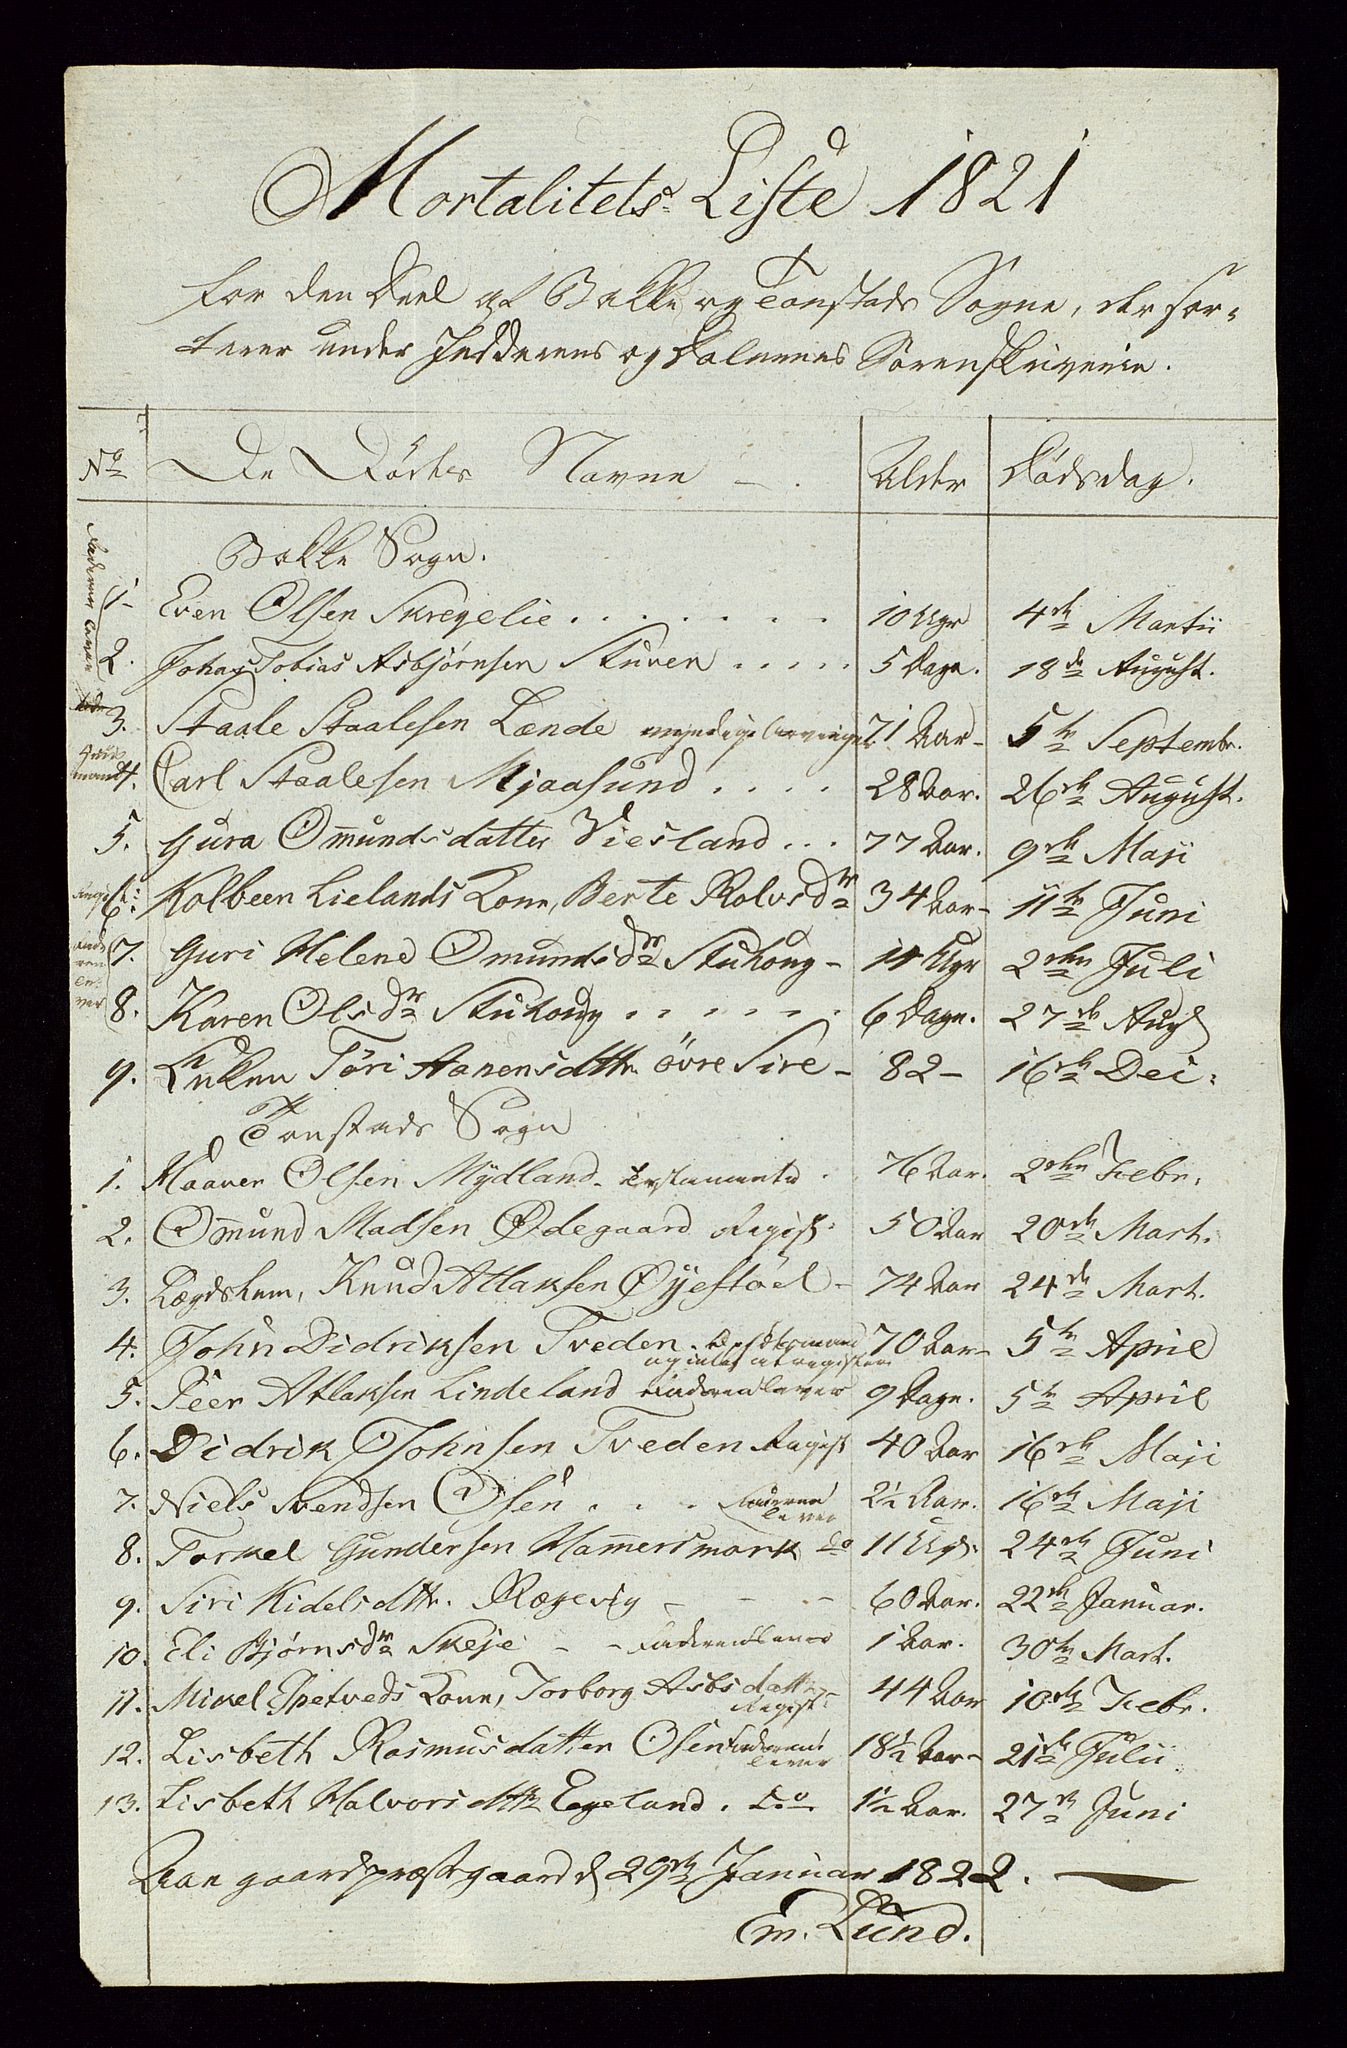 Mortalitets Liste 1821
for den Deel af Bakke og Tonstads Sogne, der sor-
terer under Jedderens og Dalernes Sorenskriverie.
No De Dødes Navne Alder Dødsdag.
Bakke Sogn.
Faderen lever
1 Even Olsen Skregelie 10 Uger 4de Martii
2. Johan Tobias Asbjørnsen Stuven 5 Dage. 18de August.
3. Staale Staalesen Lænde myndige Arvinger 71 Aar 5te Septembr.
Huusmand 4. Carl Staalesen Mjaasund 28 Aar. 26de August.
5. Gura Omundsdatter Viesland 77 Aar. 9de Maji
Regist: 6. Kolbeen Lielands Kone, Berte Rolvsdr 34 Aar 11te Juni
Faderen lever
7. Guri Helene Omundsdr Stuhoug 11 Uger 2den Juli
8. Karen Olsdr Stuhoug 6 Dage. 27de Aug
9. Enken Tøri Aanensdttr. øvre Sire 82 16de Dec:
Tonstads Sogn
1. Haaver Olsen Mydland. Testamente 76 Aar. 2den Febr.
2. Omund Madsen Ødegaard Regist. 50 Aar 20de Mart.
3. Lægdslem, Knud Atlaksen Øyestøel 74 Aar 24de Mart.
4. John Didriksen Tveden. 70 Aar 5te April
og intet at registere
5. Peer Atlaksen Lindeland Faderen lever 9 Dage. 5te April
6. Didrik Johnsen Tveden Regist 40 Aar 16de Maji
7. Niels Svendsen Osen Faderen lever 2½ Aar. 16de Maji
8. Torkel Gundersen Hamersmark do 11 Uger 24de Juni
9. Siri Kidelsdttr. Røgevig 60 Aar. 22de Januar.
10. Eli Bjørnsdr Skeje Faderen lever 1 Aar. 30te Mart.
11. Mikel Espetveds Kone, Torborg Asbsdatter Regist 44 Aar 10de Febr.
12. Lisbeth Rasmusdatter Osen Faderen lever 18½ Aar 21de Julii
13. Lisbeth Halvorsdttr Egeland. do 1½ Aar. 27de Juni
Aangaard præstegaard d 29de Januar 1822.
Em. Lund.